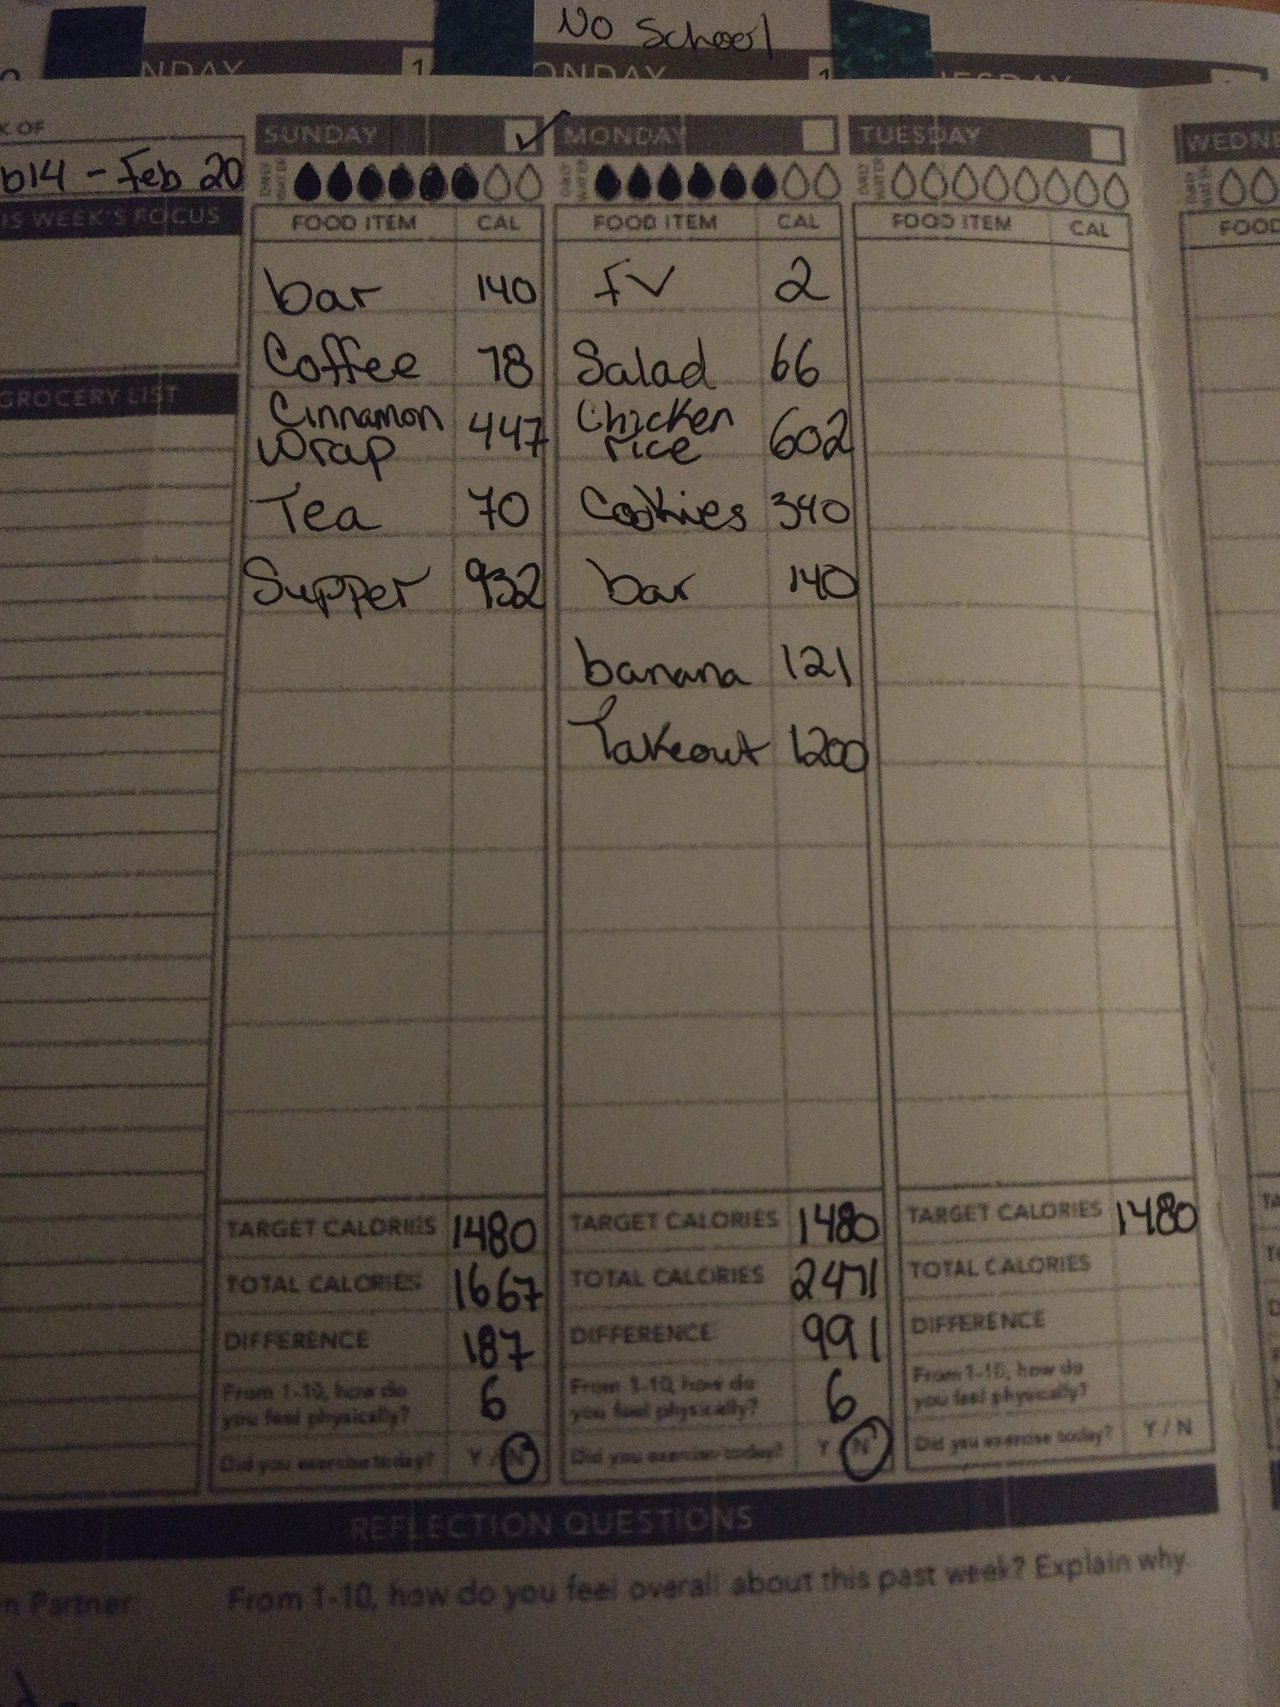 No School
NDAY 1 ONDAY 1 UESDAY
K OF
b14 - Feb 20
IS WEEK'S FOCUS
GROCERY LIST
SUNDAY
DAILY WATER
FOOD ITEM CAL
bar 140
Coffee 78
Cinnamon
Wrap 447
Tea 70
Supper 932
TARGET CALORIES 1480
TOTAL CALORIES 1667
DIFFERENCE 187
From 1-10, how do
you feel physically? 6
Did you exercise today? Y / N
MONDAY
DAILY WATER
FOOD ITEM CAL
FV 2
Salad 66
Chicken
rice 602
Cookies 340
bar 140
banana 121
Takeout 1200
TARGET CALORIES 1480
TOTAL CALORIES 2471
DIFFERENCE 991
From 1-10, how do
you feel physically? 6
Did you exercise today? Y / N
TUESDAY
DAILY WATER
FOOD ITEM CAL
TARGET CALORIES 1480
TOTAL CALORIES
DIFFERENCE
From 1-10, how do
you feel physically?
Did you exercise today? Y / N
WEDNE
FOOD
REFLECTION QUESTIONS
n Partner
From 1-10, how do you feel overall about this past week? Explain why